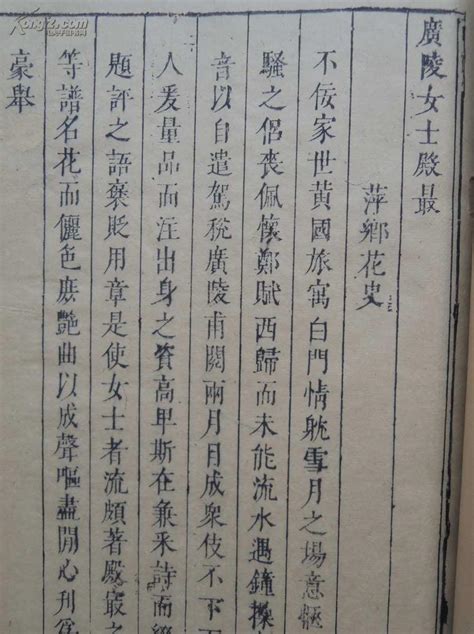 廣陵女士殿最
萍鄉花史
不佞家世黃國旅寓白門情躭雪月之場意愜
騷之侶喪佩懷鄭賦西歸而未能流水遇鐘操
音以自遣駕稅廣陵甫閱兩月目成衆伎不下
人爰量品而注出身之資高卑斯在兼采詩而綴
題評之語褒貶用章是使女士者流頗著殿最之
等譜名花而儷色庶艷曲以成聲嘔盡閒心刋爲
豪舉
KongZ.com